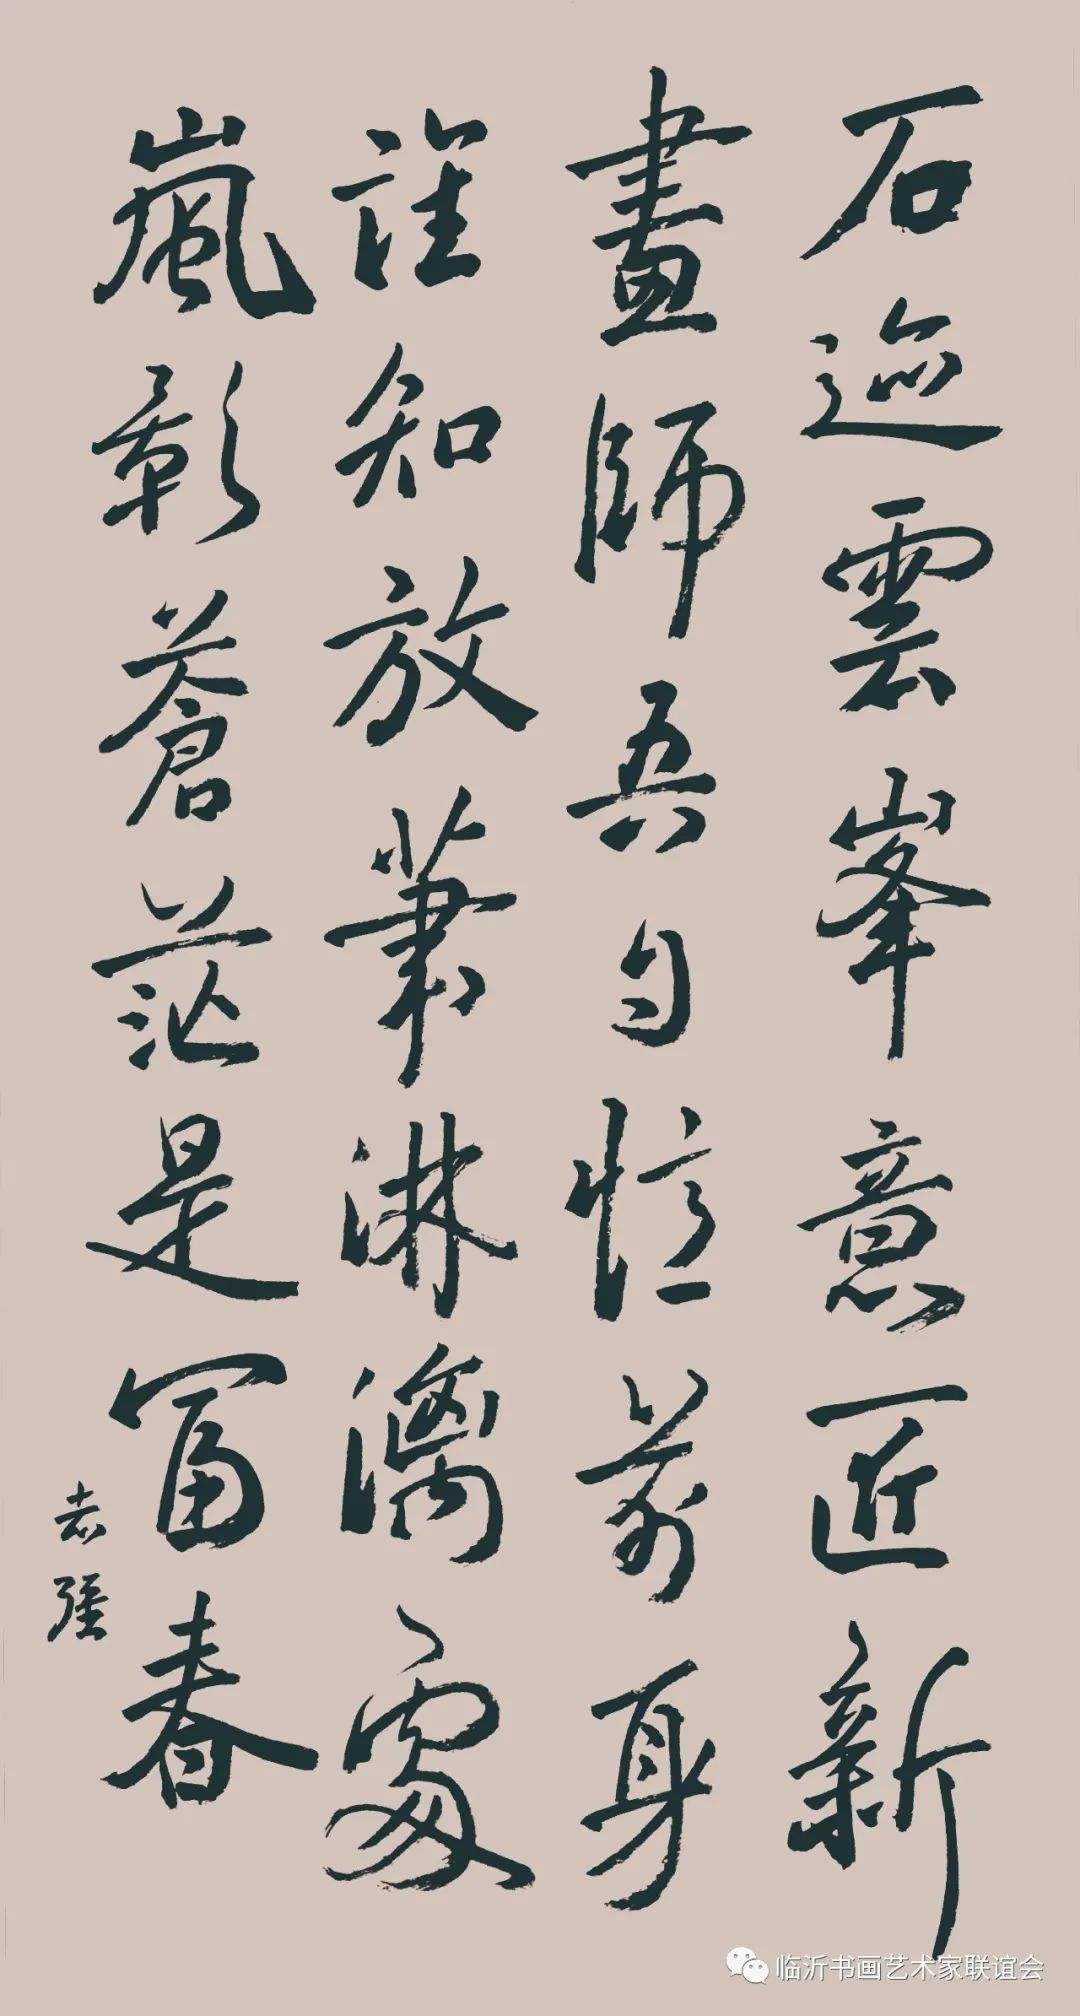 石迹雲峯意匠新
畫師吾自憶前身
誰知放筆淋漓處
嵐影蒼茫是富春
志強
临沂书画艺术家联谊会